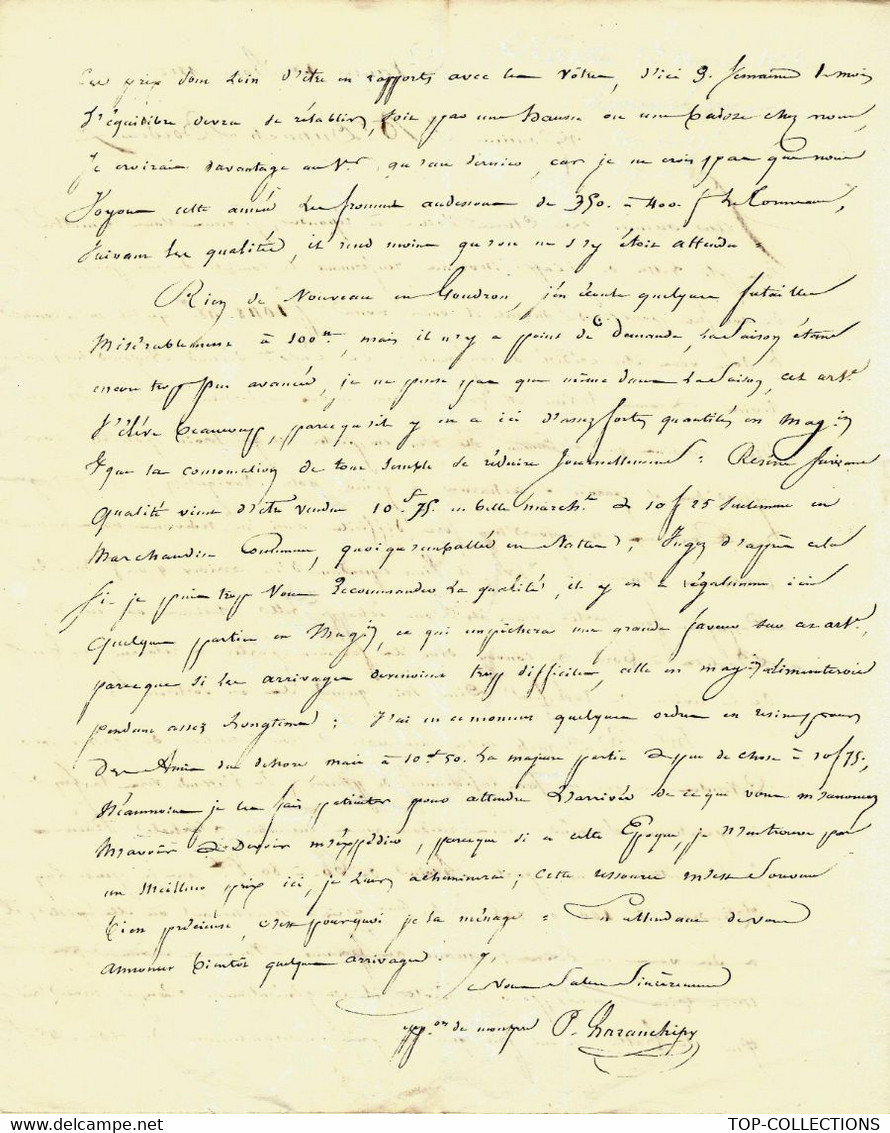 Ces prix sont loin d'être en rapports avec les vôtres, d'ici 3 semaines 1 mois
l'équilibre devra se rétablir, soit par une hausse ou une baisse chez nous,
Je croirais davantage au 1er qu'au dernier, car je ne crois pas que nous
Voyons cette année les froment audessous de 350. à 400. f le Tonneau,
suivant les qualités, il rend moins qu'on ne s'y étoit attendu =
Rien de Nouveau en Goudron, j'en écoule quelques futailles
Misérablement à 100 mais il n'y a point de demande, la Saison étant
encore trop peu avancée, je ne pense pas que même dans la Saison, cet art.
s'élève beaucoup, parcequ'il y en a ici d'assez fortes quantités en mag.in
& que la consomation de tous semble se réduire Journellement : Résine suivant
qualité vient d'être vendu 10.f 75. en belle march.se & 10 f 25 seulement en
Marchandise Commune, quoiqu'emballée en Nattes, Jugez d'après cela
si je puis trop Vous Recommander la qualité, il y en a également ici
quelques parties en Mag.in, ce qui empêchera une grande faveur sur cet art.
parceque si les arrivages devenoient trop difficiles, celle en mag.in alimenteroit
pendant assez longtems ; J'ai en ce moment quelques ordres en résine pour
Des Amis du dehors mais à 10.f 50. la majeure partie & peu de chose à 10 f 75,
Néanmoins je les fais patienter pour attendre l'arrivée de ce que vous m'anoncez
M'avoir & Devoir m'expédier, parceque si a cette Epoque, je n'en trouve pas
un Meilleur prix ici, je leur acheminerai ; cette ressource m'est Souvent
bien précieuse, c'est pourquoi je la ménage = En attendant de vous
annoncer bientôt quelques arrivages.
Je Vous Salue Sincèrement
pp.on de mon père P.
TOP-COLLECTIONS